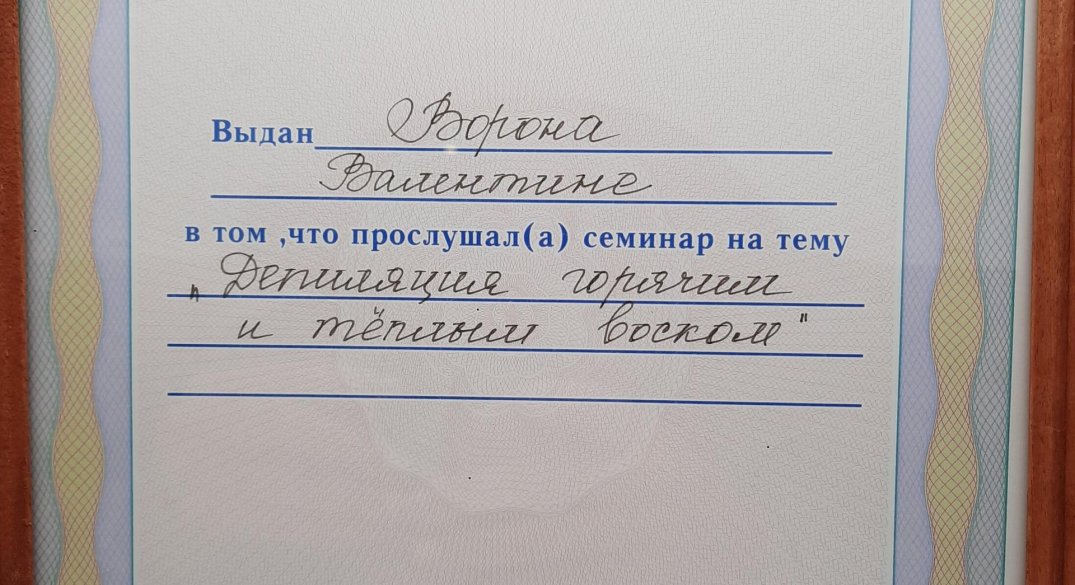 Выдан Ворона
Валентине
в том ,что прослушал(а) семинар на тему
„Депиляция горячим
и тёплым воском"